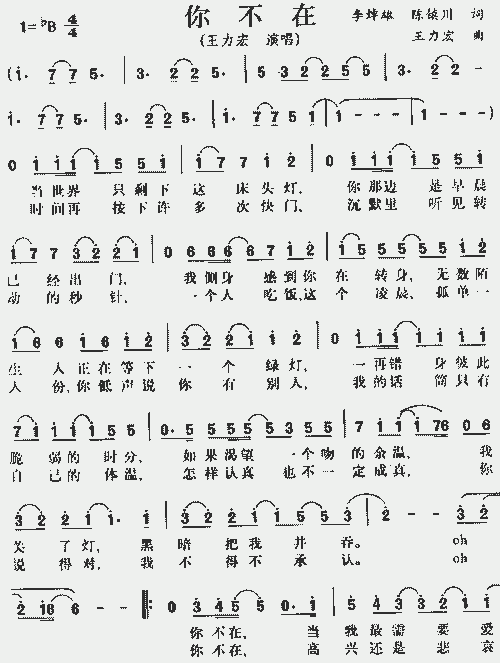 你 不 在
(王力宏 演唱)
1=♭B 4/4 4/4
陈镇川 词
王力宏 曲
(i· 7 7 5· 3· 2 2 5· 5 3 2 2 5 5 3· 2 2
i· 7 7 5· 3· 2 2 5· i· 7 7 5 i i - - i - - -)
0 i i i i 5 5 i i 7 7 i 2 0 i i i i 5 5 i
当 世 界 只 剩 下 这 床 头 灯, 你 那 边 是 早 晨
时 间 再 按 下 许 多 次 快 门, 沉 默 里 听 见 转
i 7 7 3 2 2 i 0 6 6 6 6 7 i 2 i 5 5 5 5 i i
已 经 出 门, 我 侧 身 感 到 你 在 转 身, 无 数 陌
动 的 秒 针, 一 个 人 吃 饭, 这 个 凌 晨, 孤 单 一
i 6 6 i 6 i 2 3 2 2 i i 0 i i i i i i i
生 人 正 在 等 下 一 个 绿 灯, 一 再 错 身 彼 此
人 份, 你 低 声 说 你 有 别 人, 我 的 话 筒 只 有
7 i i i i 5 5 0· 5 5 5 5 5 3 5 5 7 i i i 7 6 0 6
脆 弱 的 时 分, 如 果 渴 望 一 个 吻 的 余 温, 我
自 己 的 体 温, 怎 样 认 真 也 不 一 定 成 真, 你
3 2 2 i i · i 3 2 2 i i 5 5 3 2 - - 3 2
关 了 灯, 黑 暗 把 我 并 吞。 oh
说 得 对, 我 不 得 不 承 认。 oh
2 i 6 6 - - 0 3 4 5 5 0· i 5 4 3 3 2 i i
你 不 在, 当 我 最 需 要 爱
你 不 在, 高 兴 还 是 悲 哀